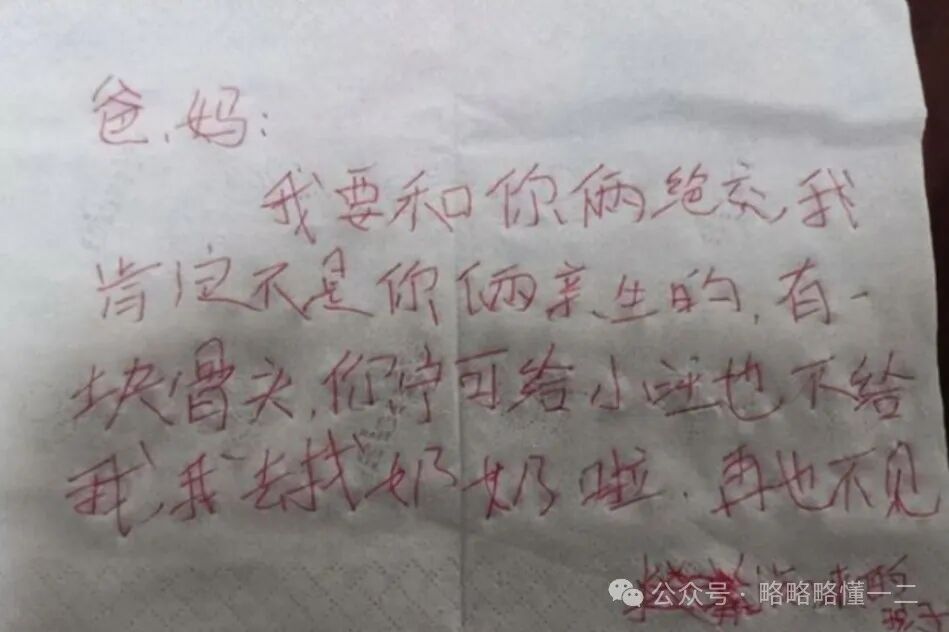 爸、妈:
我要和你俩绝交,我
肯定不是你俩亲生的,有一
块骨头,你宁可给小旺也不给
我,我去找奶奶啦,再也不见
来的
孩子
公众号·略略略懂一二